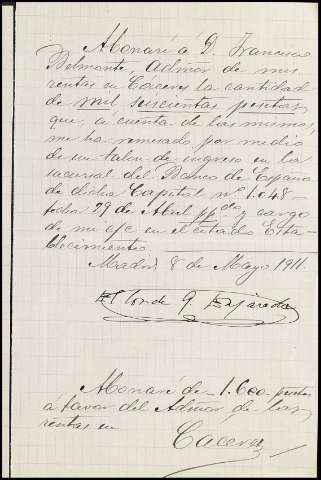 Abonaré á D. Francisco
Belmonte, Admor de mis
rentas en Cáceres la cantidad
de mil seiscientas pesetas,
que, á cuenta de las mismas,
me ha remesado por medio
de un talon de ingreso en la
sucursal del Banco de España
de dicha Capital nº 1.048-
fecha 29 de Abril ppdo y cargo
de mi c/c en el citado Esta-
blecimiento.
Madrid 8 de Mayo 1911.
El Conde
Abonaré de 1.600 pesetas
á favor del Admor de las
rentas en
Cáceres